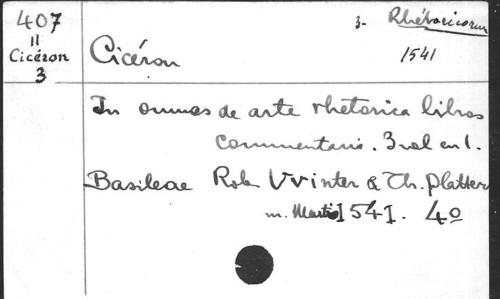 407
"
Cicéron
3
3- Rhétoricorum
1541
Cicéron
In omnes de arte rhetorica libros
Commentarii. 3 vol en 1.
Basileae Rob. Vvinter & Th. Platter
m. Martio 1541. 4º